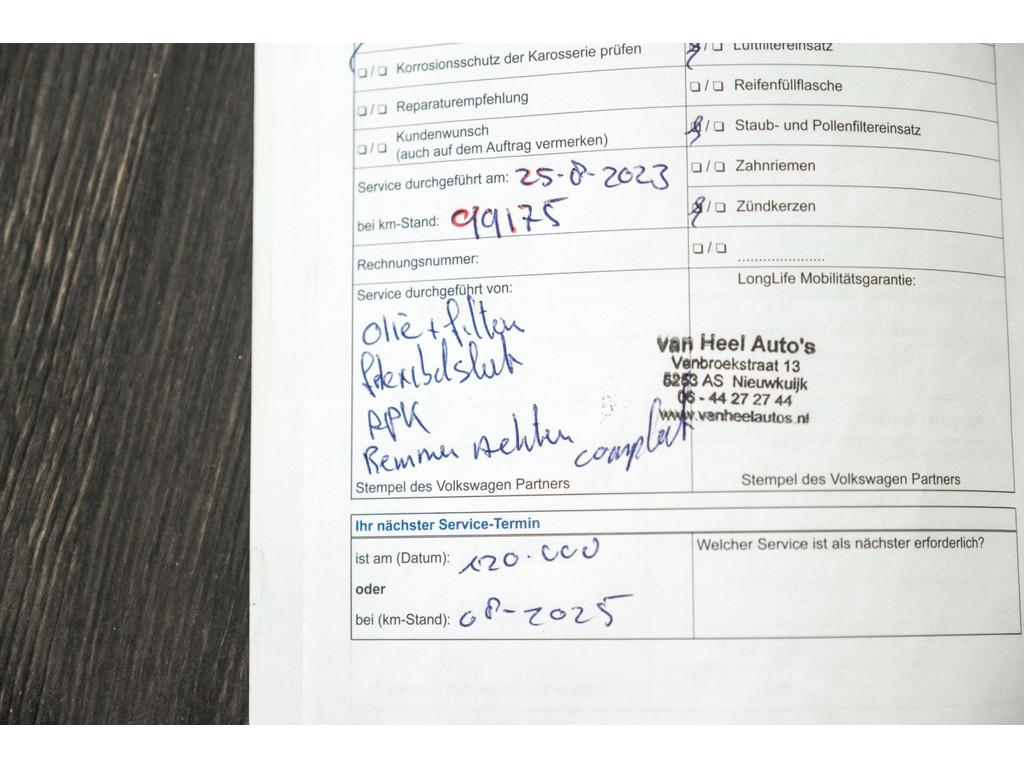 ❏ / ❏ Korrosionsschutz der Karosserie prüfen
❏ / ❏ Reparaturempfehlung
❏ / ❏ Kundenwunsch
(auch auf dem Auftrag vermerken)
Service durchgeführt am: 25-8-2023
bei km-Stand: 99175
Rechnungsnummer:
Service durchgeführt von:
Olie + filter
APK
Remmen Achter compleet
Stempel des Volkswagen Partners
/ ❏ Luftfiltereinsatz
❏ / ❏ Reifenfüllflasche
/ ❏ Staub- und Pollenfiltereinsatz
❏ / ❏ Zahnriemen
/ ❏ Zündkerzen
❏ / ❏ .....................
LongLife Mobilitätsgarantie:
van Heel Auto's
Venbroekstraat 13
5253 AS Nieuwkuijk
06 - 44 27 27 44
www.vanheelautos.nl
Stempel des Volkswagen Partners
Ihr nächster Service-Termin
ist am (Datum): 120.000
oder
bei (km-Stand): 08-2025
Welcher Service ist als nächster erforderlich?